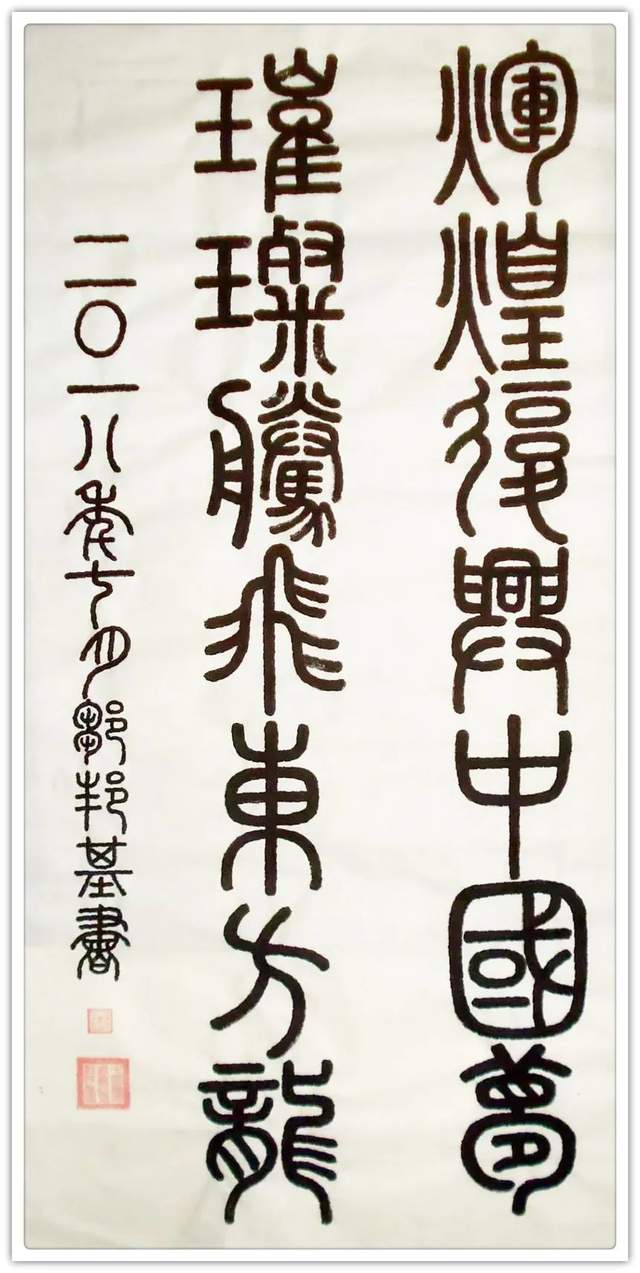 煇煌復興中國夢
璀璨騰飛東方龍
二〇一八季七月鄒邦基書